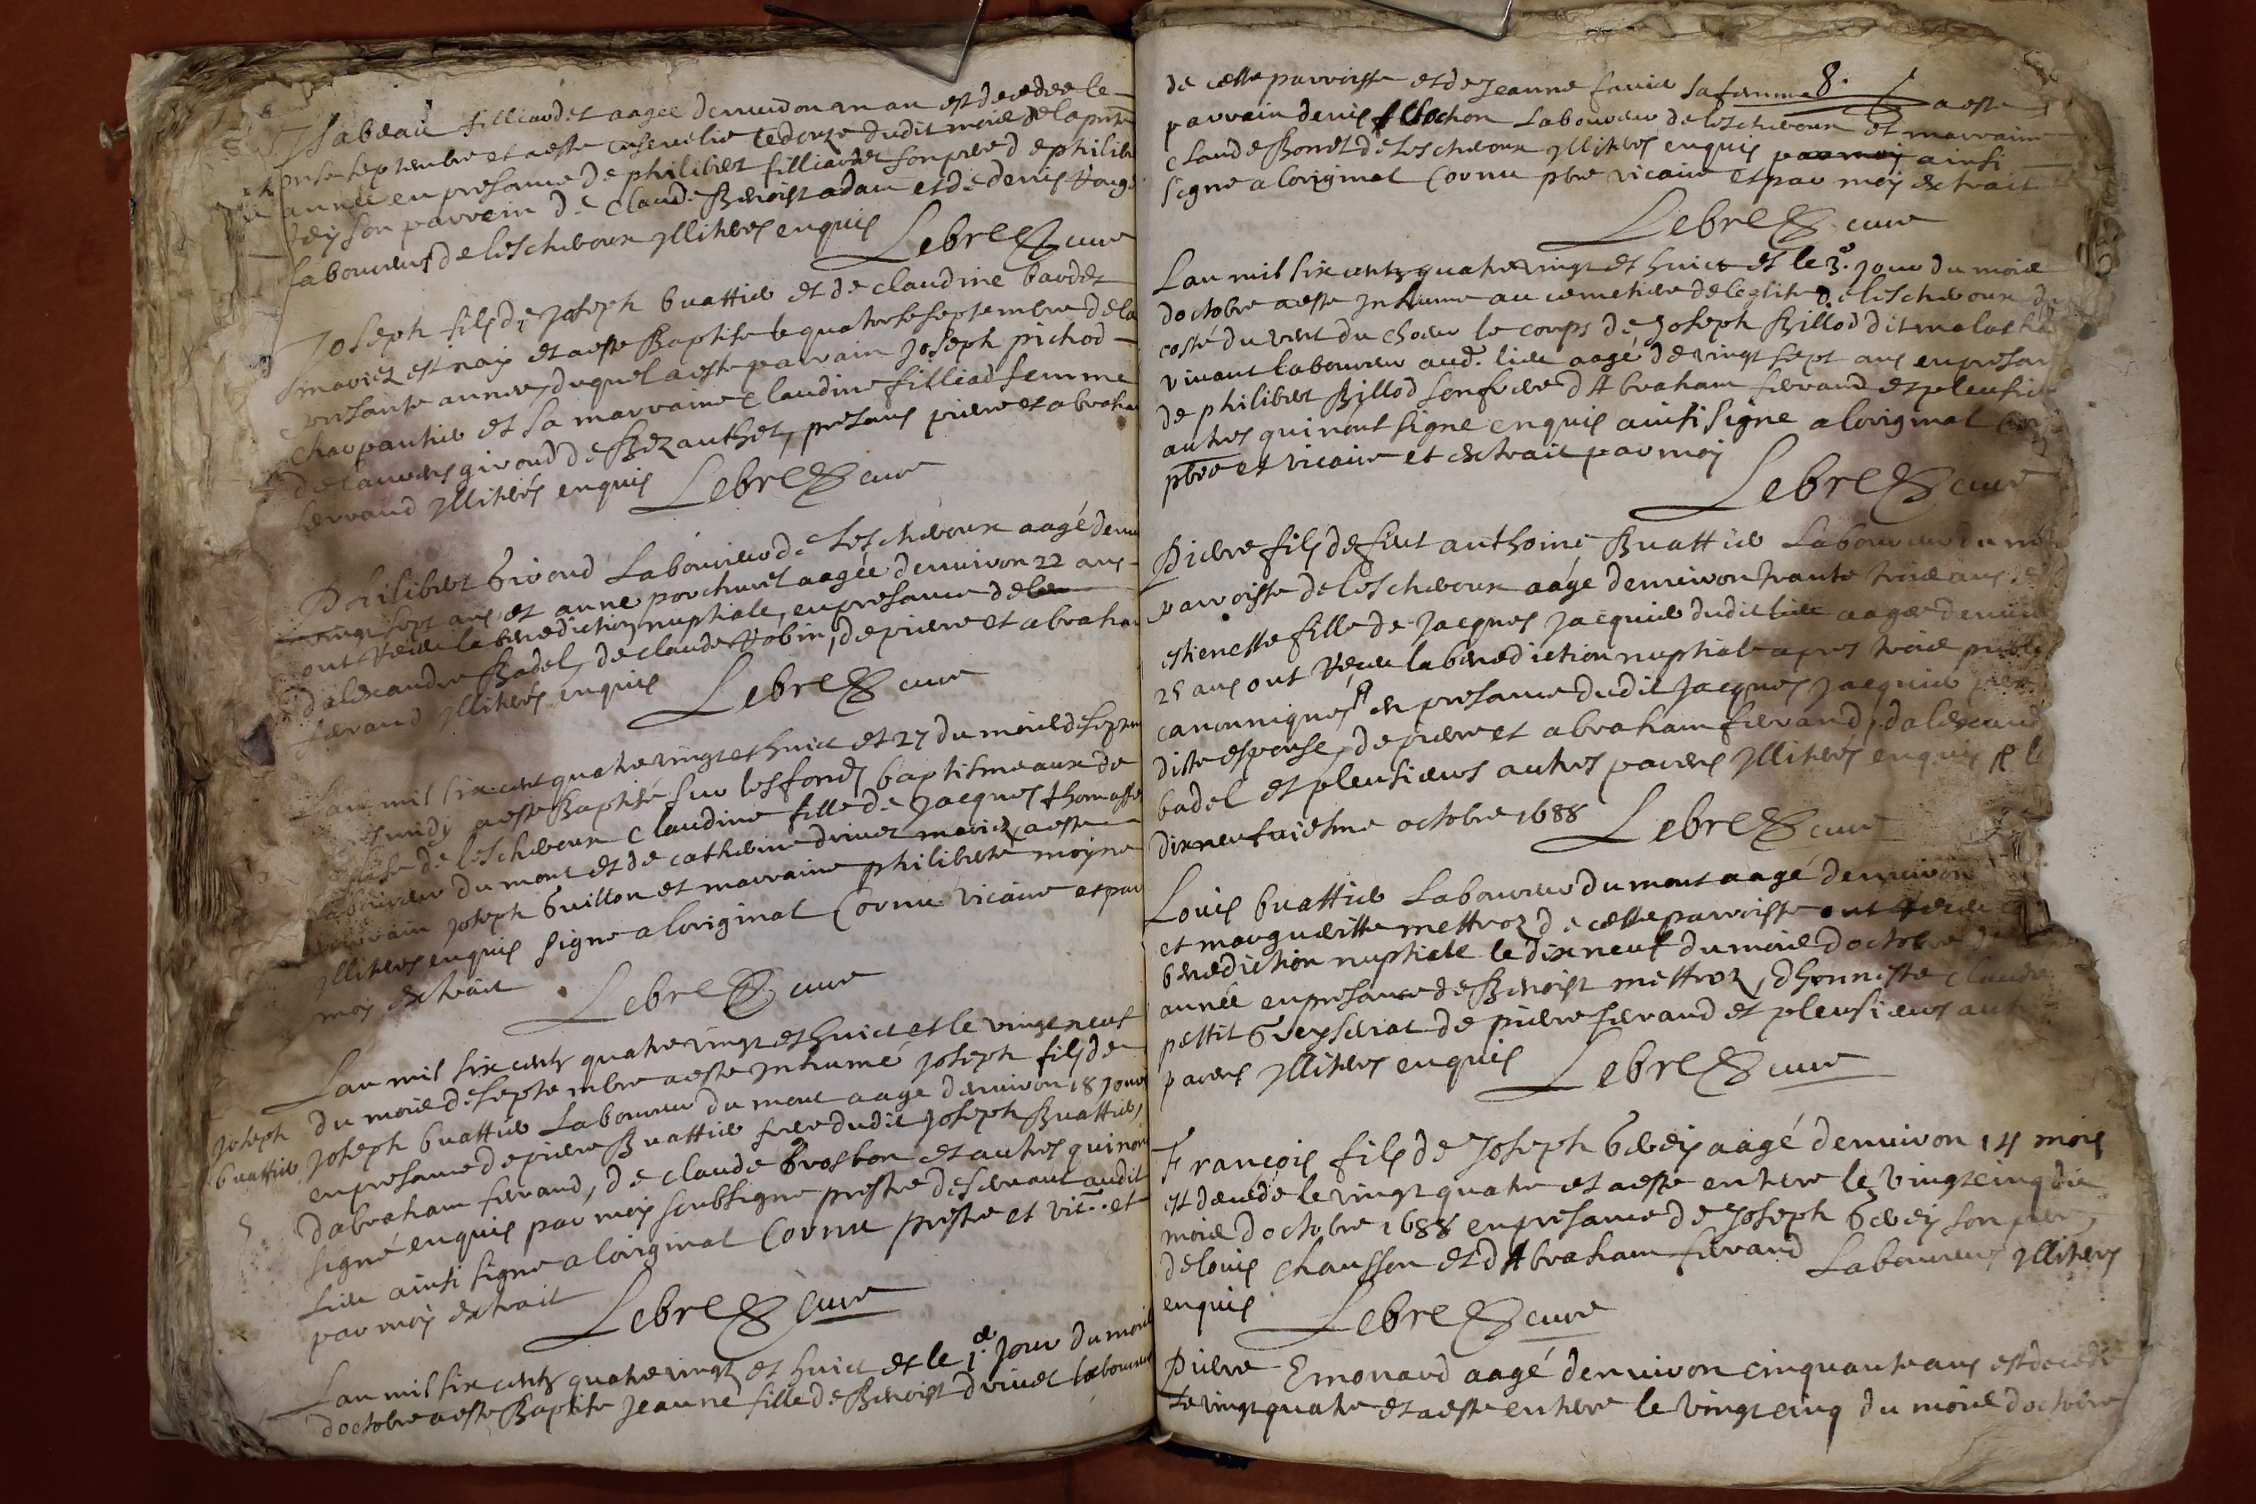 Isabeau filliaudet aagee denuiron un an est decedee le
onse septembre et a este enseuelie le douze dudit mois de la pnte
annee en presance de philibert filliaudet son pere de philibert
son parrein de Claude Benoist adam et de denis
laboureurs de lescheroux illiteres enquis
LebreB cure
Joseph fils de Joseph buattier et de claudine bardet
mariez est nay et a este Baptise le quatorse septembre de la
presante annee, duquel a este parrain Joseph pichod
charpantier et sa marraine Claudine filliad femme
de laurens giroud de Bezanthet, presens pierre et abraham
ferrand illiteres enquis
LebreB cure
Philibert Giroud Laboureur de Lescheroux aagé denuiron
vingt sept ans et anne porchuret aagée denuiron 22 ans
ont receu la benediction nuptiale, en presance de
dalexandre Badel, de claude Robin, de pierre et abraham
ferand illiteres enquis
LebreB cure
Lan mil six cent quatre vingt et huict et 27 du mois de septembre
a este Baptisé sur les fonds baptismeaux de
de leschereoux Claudine fille de Jacques thomasset
laboureur du mont et de catherine driuet mariez, a este
parrain Joseph Guillon et marraine philiberte moyne
illiteres enquis signe a loriginal Cornu vicaire et par
moy extrait
LebreB cure
Lan mil six cents quatre vingt et huict et le vingt neuf
du mois de septembre a este Inhumé Joseph fils de
Joseph
Joseph buattier Laboureur du mont aage denuiron 18 jours
buattier
en presance de pierre Buattier frere dudit Joseph Buattier,
dabraham ferand, de claude Brosbon et autres qui nont
signé enquis par moy soubsigne prestre deseruant audit
Lieu ainsi signe a loriginal Cornu prestre et vic.re et
par moy extrait
LebreB cure
Lan mil six cents quatre vingt et huict et le 1.er Jour du mois
doctobre a este Baptise Jeanne fille de Benoist driuet laboureur
8.
de cette parroisse et de Jeanne fauier sa femme a este
parrain denis Lochon Laboureur de leschereoux et marraine
Claude Bonet de Leschereoux illiteres enquis par moy ainsi
signe a loriginal Cornu pbre vicaire et par moy extrait
LebreB cure
Lan mil six cents quatre vingt et huict et le 3.e jour du mois
doctobre a este Inhume au cemetiere de leglise de leschereoux du
costé du vent du choeur le corps de Joseph Billod dit
viuant laboureur aud. lieu aagé de vingt sept ans en presance
de philibert Billod son frere d Abraham ferrand et pleusieurs
autres qui n'ont signe enquis ainsi signe a loriginal
pbre et vicaire et extrait par moy
LebreB cure
Pierre fils de feut anthoine Buattier Laboureur du
parroisse de leschereoux aage denuiron trante trois ans et
estienette fille de Jacques Jacquier dudit lieu aagee denuiron
25 ans ont receu la benediction nuptiale apres trois publi
canonniques, en presance dudit Jacques Jacquier pere
ditte espouse, de pierre et abraham ferrand, dalexandre
badel et pleusieurs autres parens illiteres enquis le
dixneufuiesme octobre 1688
LebreB cure
Louis buattier Laboureur du mont aagé denuiron
et marguerite mettroz de cette parroisse ont receu
benediction nuptiale le dixneuf du mois doctobre
année en presance de Benoist mettroz, dhonneste Claude
pettit Greyseriat de pierre ferand et pleusieurs autres
parens illiteres enquis
LebreB cure
François fils de Joseph Gerey aagé denuiron 14 mois
est decedé le vingt quatre et a este enterre le vingt cinq du
mois doctobre 1688 en presance de Joseph Gerey son pere,
de louis Chausson et d'Abraham ferand Laboureurs illiteres
enquis
LebreB cure
Pierre Emonard aagé denuiron cinquante ans est decedé
Le vingt quatre et a este enterre le vingt cinq du mois doctobre